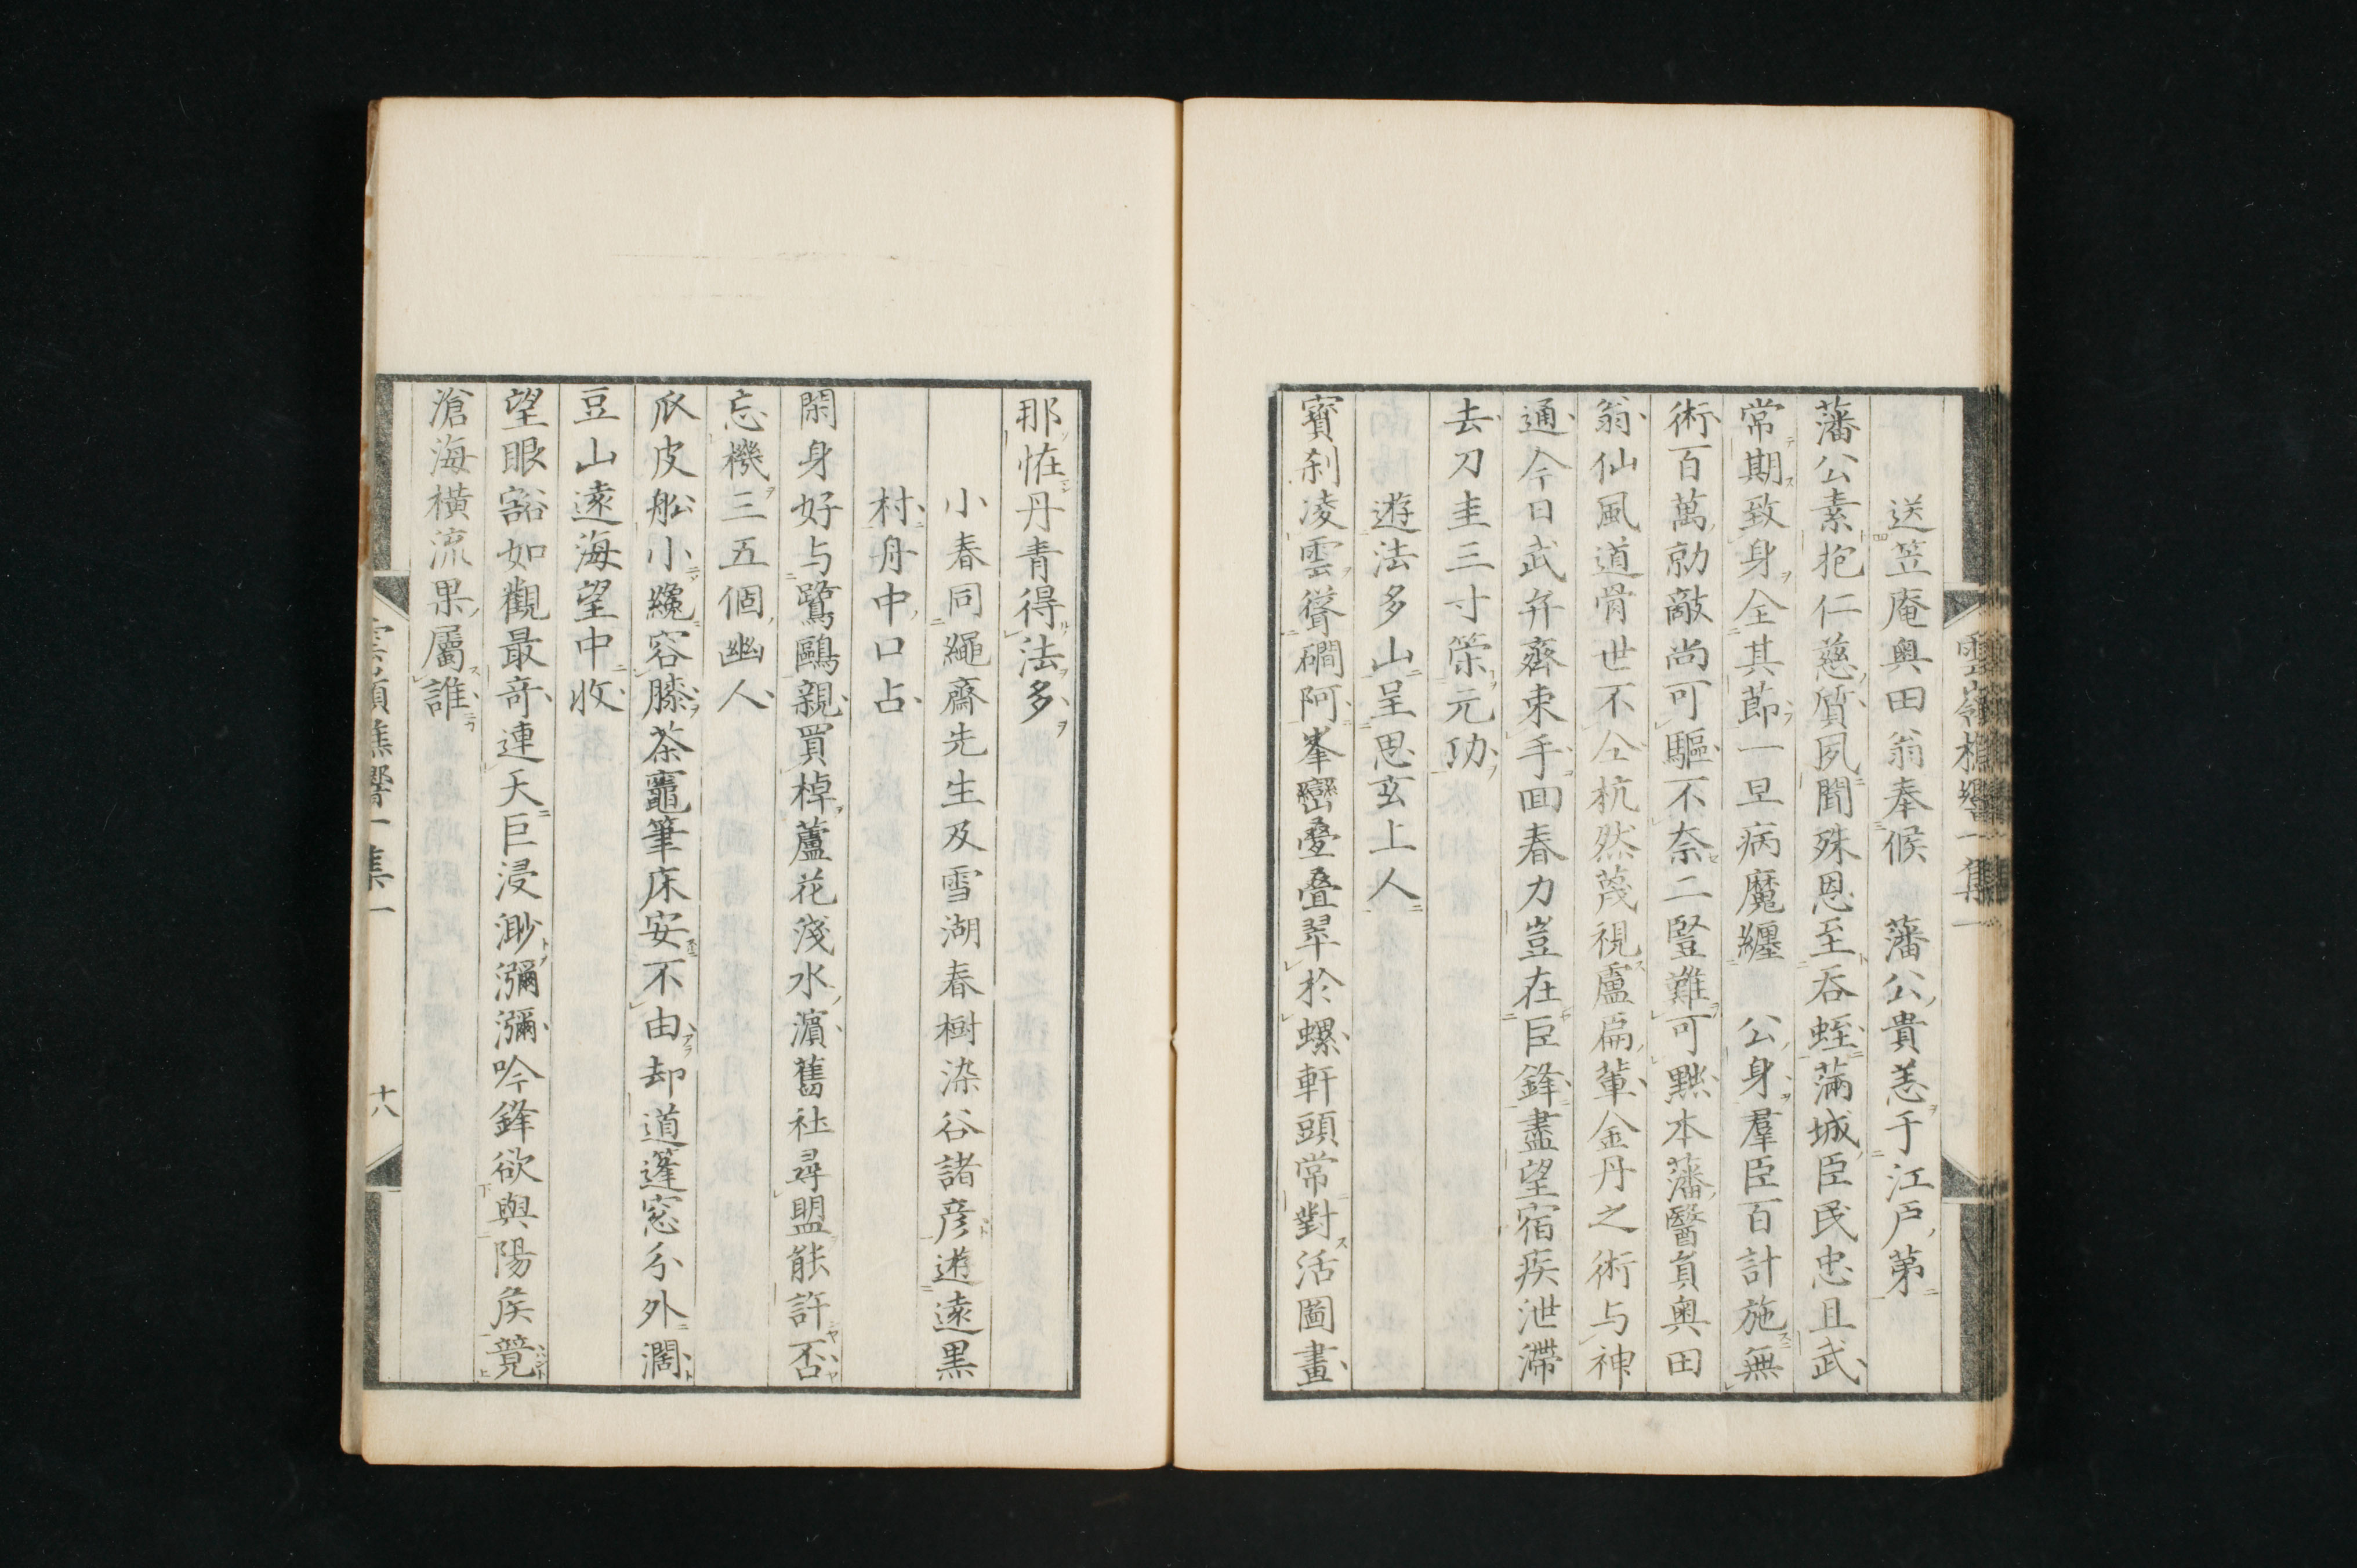 雲嶺樵響一集一
送笠庵奥田翁奉候　藩公貴恙于江戸第
藩公素抱仁慈質夙聞殊恩至呑蛭滿城臣民忠且武
常期致身全其節一旦病魔纏　公身羣臣百計施無
術百萬勍敵尚可驅不奈二豎難可黙本藩醫員奥田
翁仙風道骨世不仝杭然蔑視盧扁輩金丹之術与神
通今日武弁齊束手回春力豈在臣鋒盡望宿疾泄滯
去刀圭三寸策元功
遊法多山呈思玄上人
寳刹凌雲聳磵阿峯巒疊疊翠於螺軒頭常對活圖畫
那恠丹青得法多
小春同繩齋先生及雪湖春樹染谷諸彦遊遠黒
村舟中口占
閑身好与鷺鷗親買棹蘆花淺水濵舊社尋盟能許否
忘機三五個幽人
瓜皮舩小纔容膝茶竈筆床安不由却道蓬窓分外濶
豆山遠海望中收
望眼豁如觀最竒連天巨浸渺瀰瀰吟鋒欲與陽侯競
滄海横流果屬誰
雲嶺樵響一集一
十八